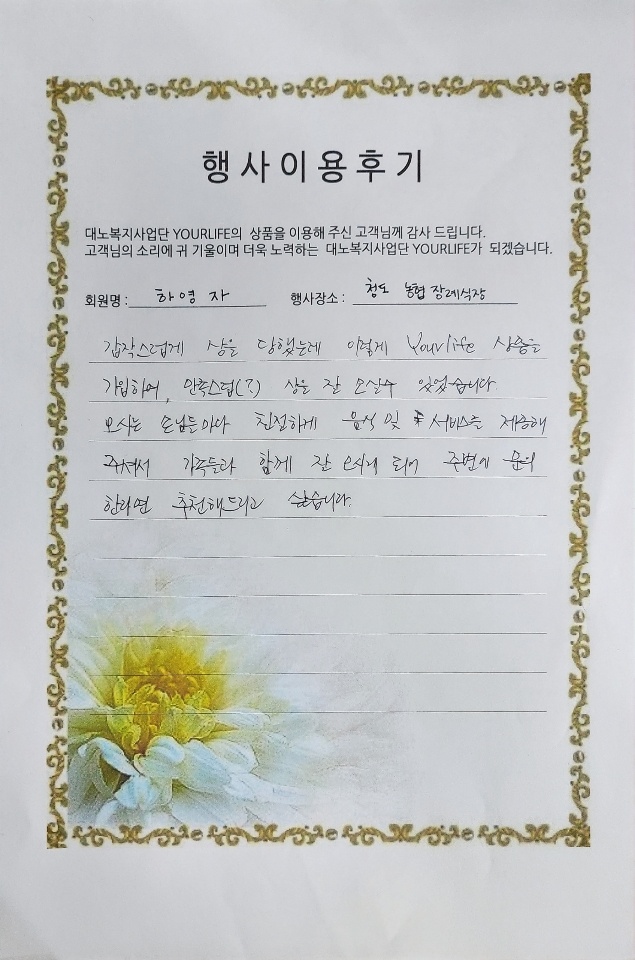 행사이용후기
대노복지사업단 YOURLIFE의 상품을 이용해 주신 고객님께 감사 드립니다.
고객님의 소리에 귀 기울이며 더욱 노력하는 대노복지사업단 YOURLIFE가 되겠습니다.
회원명 : 하영자 행사장소 : 청도 농협 장례식장
갑작스럽게 상을 당했는데 이렇게 Yourlife 상품을
가입하여, 만족스럽(?) 상을 잘 있었습니다.
오시는 손님들마다 친절하게 음식 및 서비스를 제공해
주셔서 가족들과 함께 잘 되어 주변에 문의
한다면 추천해드리고 싶습니다.